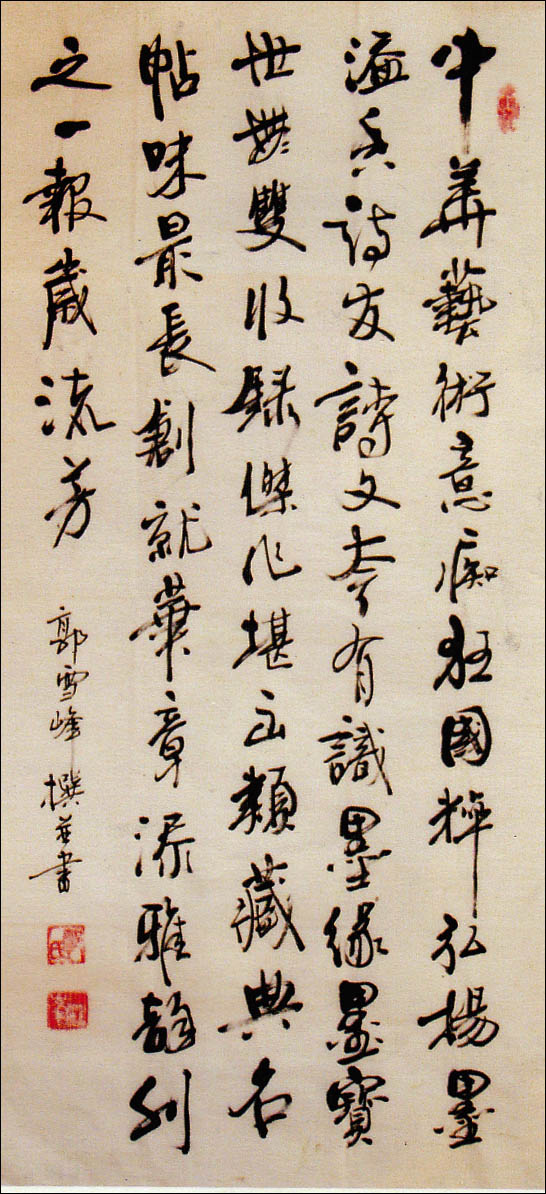 中華藝術意痴狂國粹弘楊墨
溢香詩友詩文夸有識墨緣墨寶
世無雙收録傑作堪出類藏典名
帖味最長創就華章添雅韻列
之一報歲流芳
郭雪峰撰并書